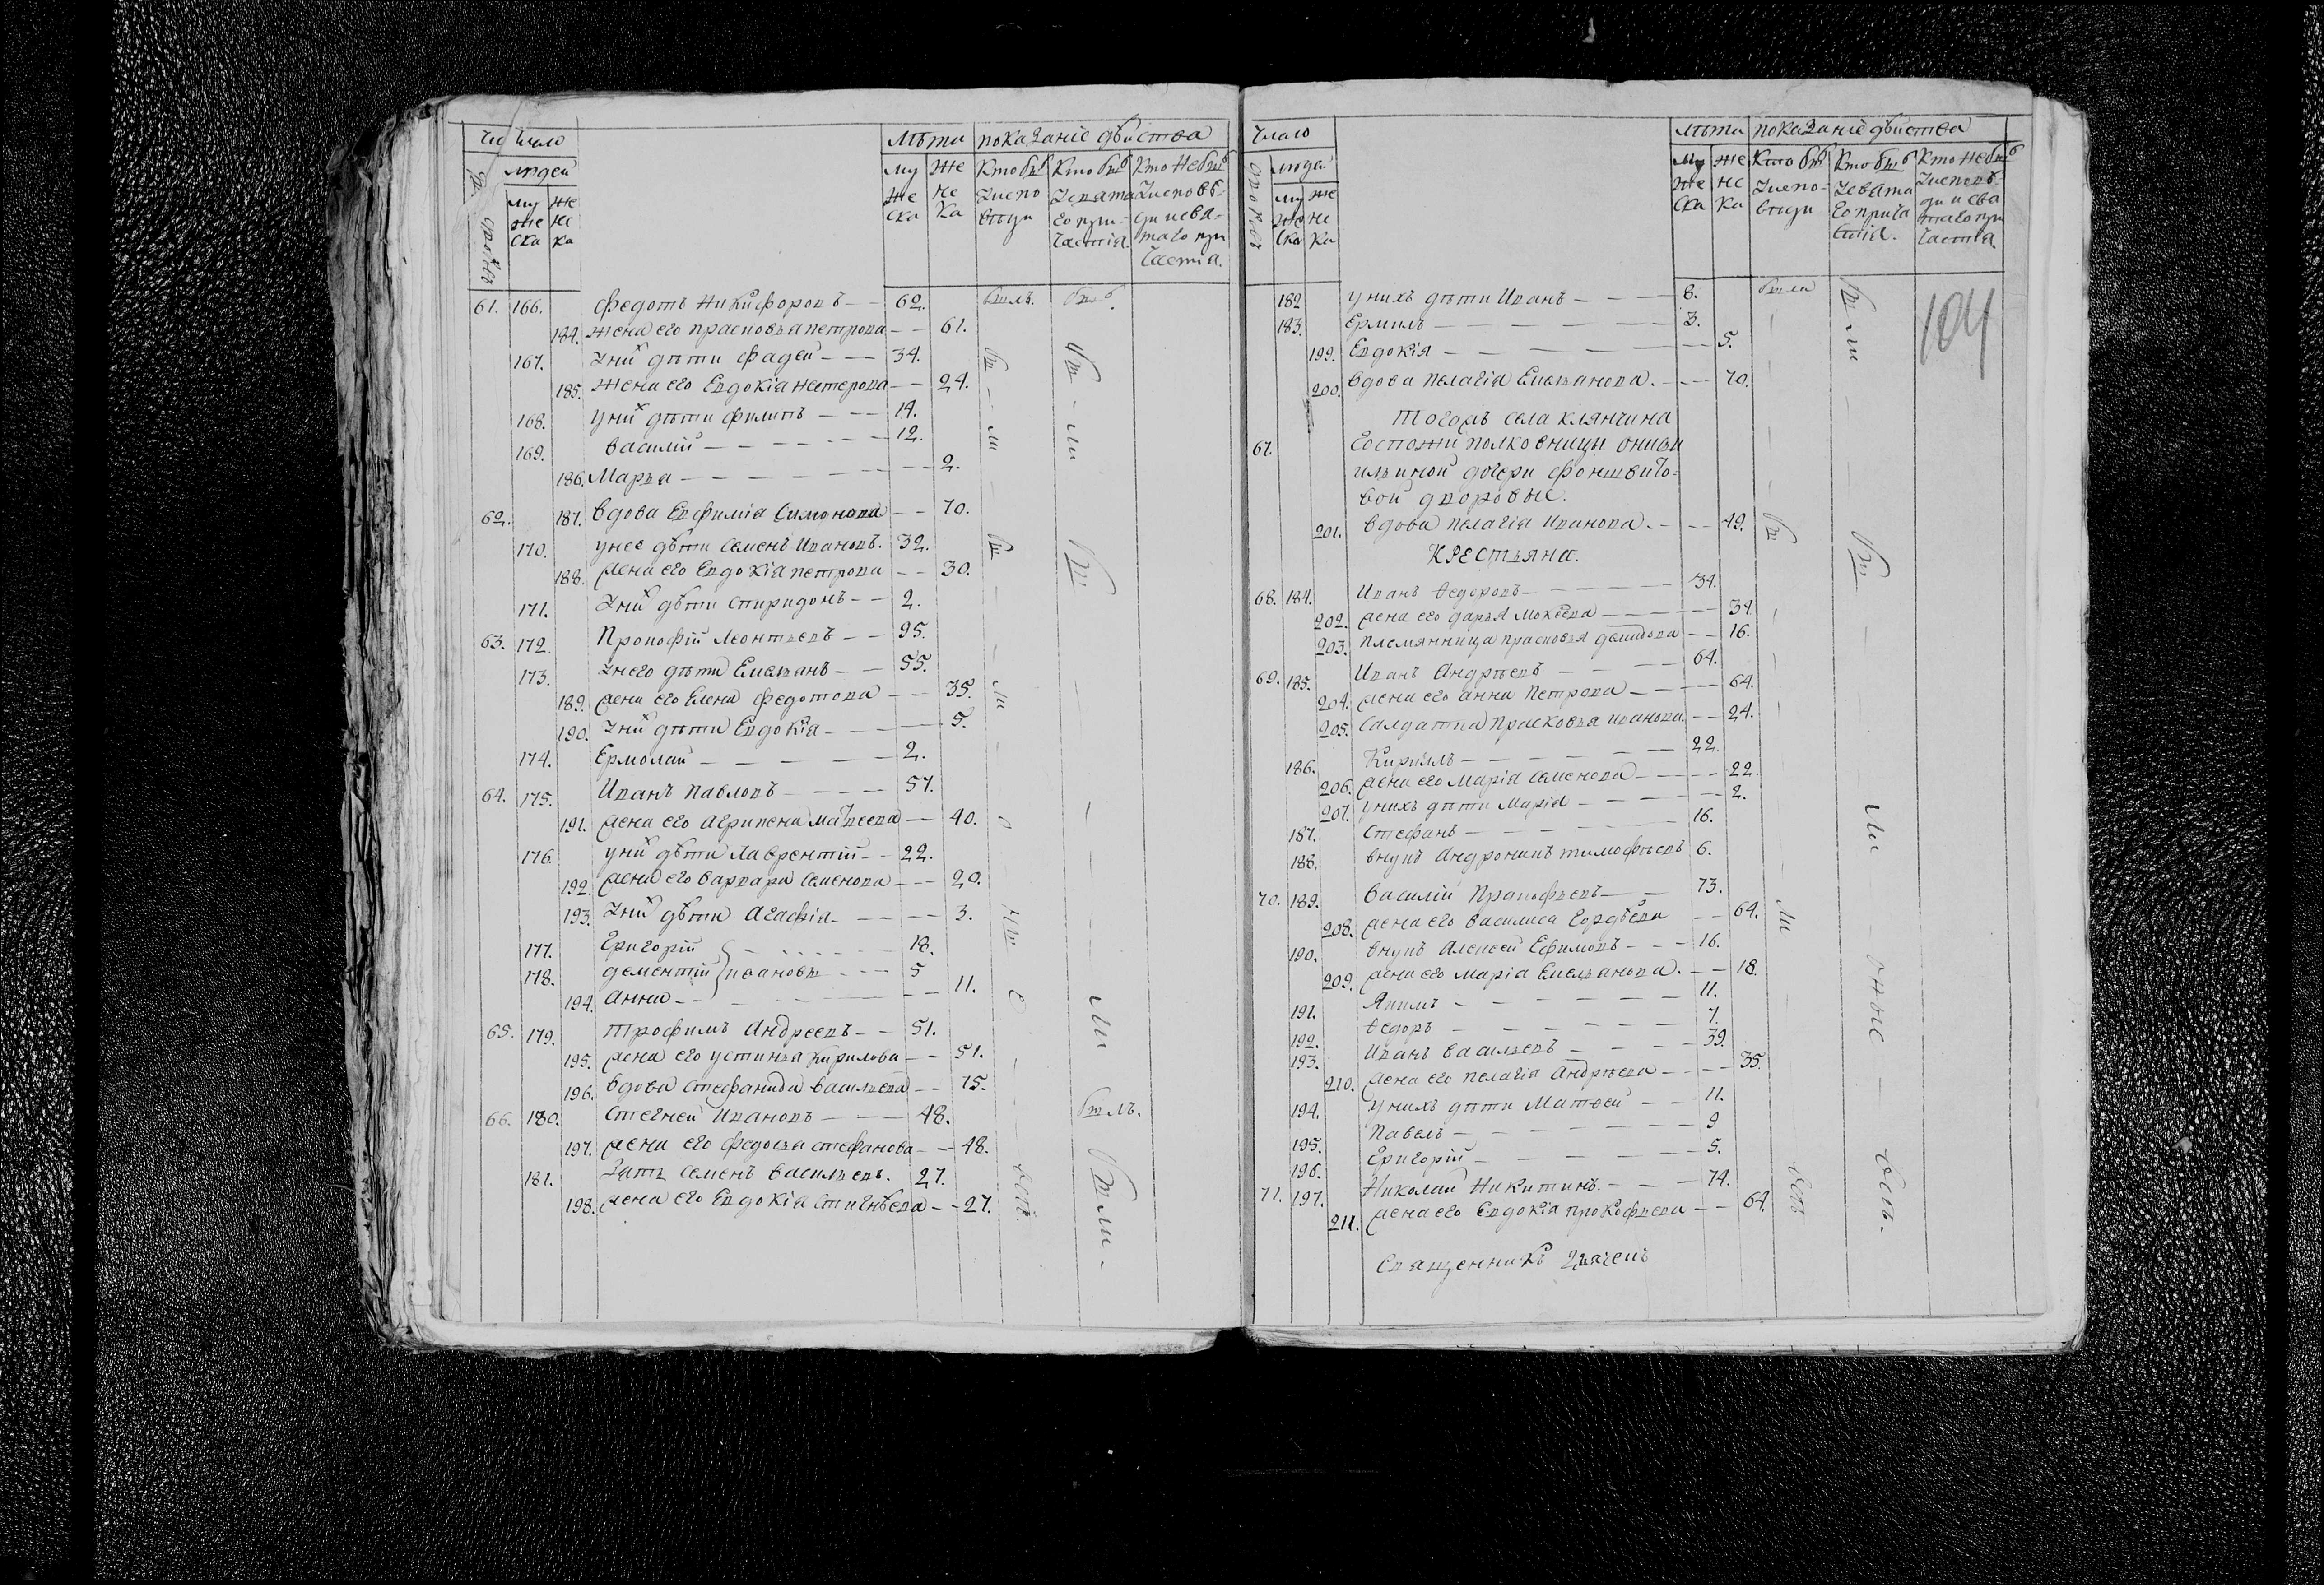 Число
людей
дворовъ
муже
ска
жен
ска
Лѣта
муже
ска
жен
ска
показаніе дѣйства
Кто былъ
у исповѣди
Кто былъ
у святаго при
частія.
Кто не былъ
у исповѣди и свя
таго при
частія.
61. 166. Федотъ Никифоровъ — — 62. былъ. былъ.
184. жена его прасковья петрова — — 61.
167. У них дѣти Фадей — — 34.
185. жена его Евдокіа нестерова — — 24.
168. у них дѣти филипъ — — — 14.
169. василій — — — — — 12.
186. Марья — — — — — 2.
62. 187. вдова Евфиміа Симонова — — 70.
170. у нее дѣти Семенъ Ивановъ. 32.
188. жена его Евдокіа петрова — — 30.
171. У них дѣти спиридонъ — — 2.
63. 172. Прокофій Леонтьевъ — — 95.
173. У него дѣти Емельянъ — — 55.
189. жена его Елена федотова — — 35.
190. У них дѣти Евдокіа — — — 5.
174. Ермолай — — — — — 2.
64. 175. Иванъ павловъ — — — — 57.
191. жена его агрипена Матвеева — — 40.
176. у них дѣти лаврентій — — 22.
192. жена его варвара семенова — — — 20.
193. У них дѣти агафіа — — — — 3.
177. Григорій — — — 18.
178. дементій } ивановы — — — 5
194. анна — — — — — 11.
65. 179. Трофимъ андреевъ — — 51.
195. жена его устинья кирилова — — 51.
196. вдова стефанида васильева — — 75.
66. 180. Стегней Ивановъ — — — 48. былъ.
197. жена его федосья стефанова — — 48.
181. Зять семенъ васильевъ. 27.
198. жена его Евдокіа стигнѣева — — 27.
Число
людей
дворовъ
муже
ска
жен
ска
лѣта
муже
ска
жен
ска
показаніе дѣйства
Кто былъ
у испо-
вѣди
Кто былъ
у свята
го прича
стія.
Кто не былъ
у исповѣ
ди и свя
таго при
частія.
104
182 у нихъ дѣти Иванъ — — — 8. была
183. Ермилъ — — — — — 3.
199. Евдокіа — — — — — 5.
200. вдова пелагіа Емельянова. — — 70.
Тогожъ села клянчина
67. Госпожи полковницы
ильиной дочери
вой дворовые.
201. вдова пелагіа Иванова. — — — 49.
КРЕСТЬЯНА.
68. 184. Иванъ Ѳедоровъ — — — — 34.
202. жена его дарья мокѣева — — — — 34.
203. племянница прасковья демидова — — 16.
69. 185. Иванъ Андрѣевъ — — — 64.
204. жена его анна Петрова — — — — 64.
205. Салдатка Прасковья иванова. — — 24.
186. Кирилъ — — — — — 22.
206. жена его Маріа семенова — — — — 22.
207. у нихъ дѣти Маріа — — — — 2.
187. Стефанъ — — — — — 16.
188. внукъ Андроникъ тимофѣевъ 6.
70. 189. Василій Прокофьевъ — — 73.
208. жена его василиса Гордѣева — — 64.
190. внукъ Алексей Ефимовъ — — — 16.
209. жена его маріа Емельянова. — — 18.
191. Якимъ — — — — — 11.
192. Ѳедоръ — — — — — 7.
193. Иванъ васильевъ — — — — 39.
210. жена его пелагіа Андрѣева — — — — 35.
194. у нихъ дѣти Матѳей — — 11.
195. Павелъ — — — — — 9
196. Григорій — — — — — 5.
71. 197. Николай Никитинъ. — — — 74.
211. жена его Евдокіа прокофьева — — 64.
Священникъ